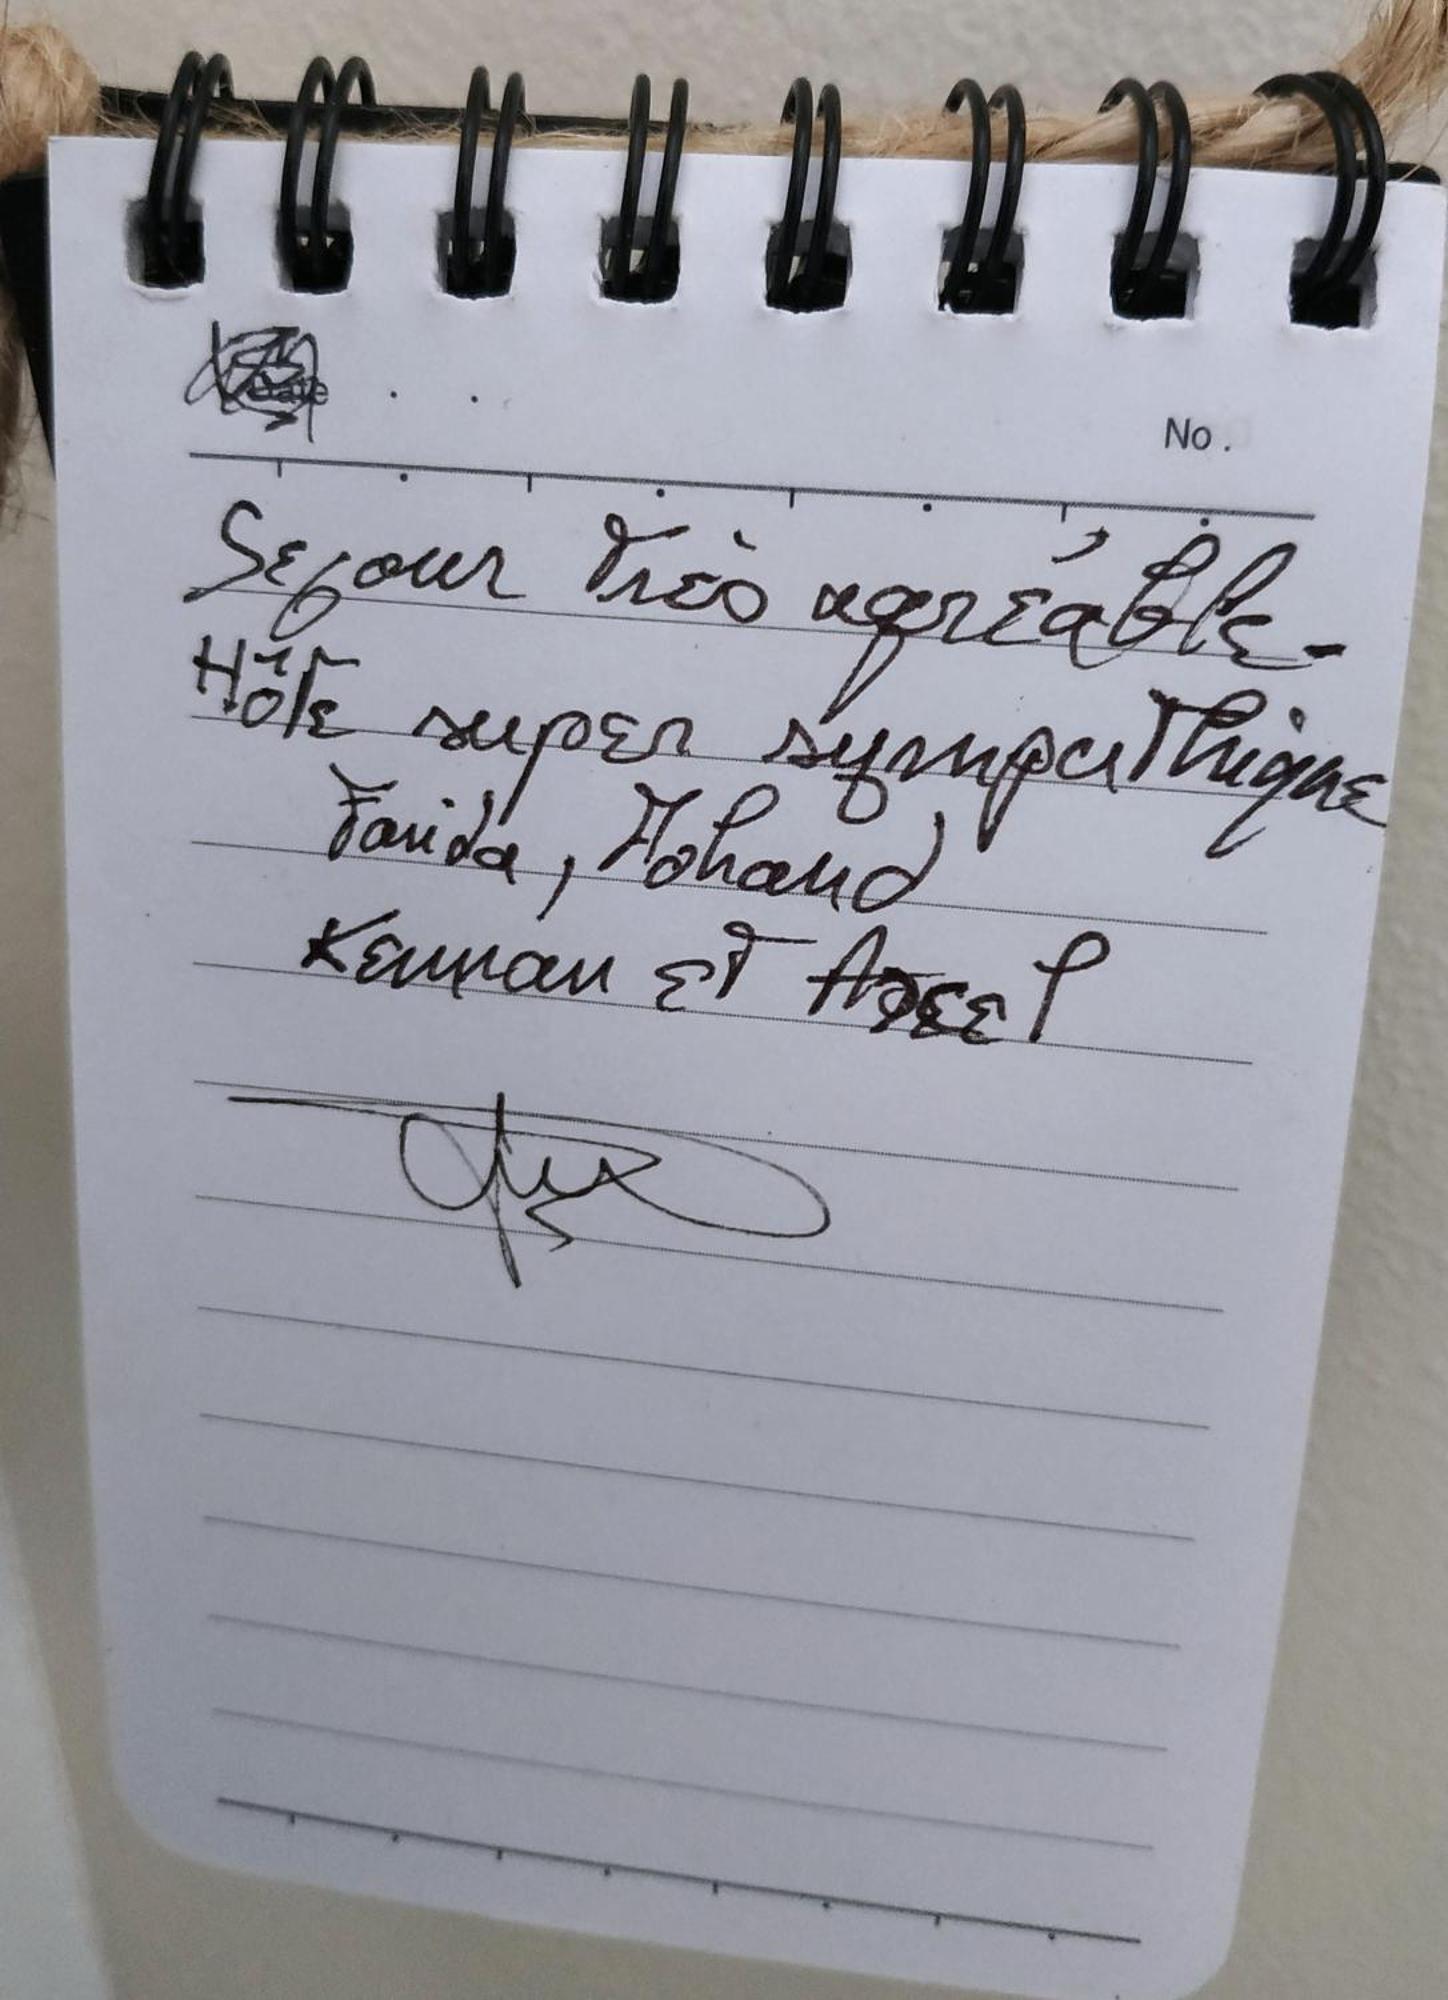 No.
Sejour très agréable-
Hôte super sympathique
Farida, Mohand
Kennan et Axel